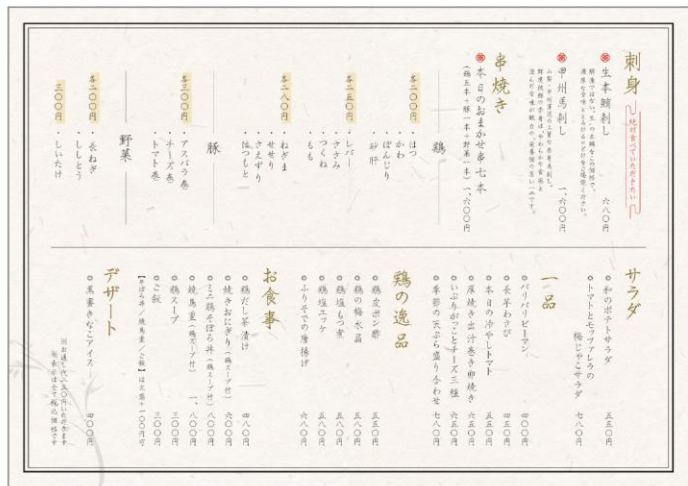 刺身
絶対食べていただきたい
生本鮪刺し 六八〇円
甲州馬刺し 一、六〇〇円
串焼き
本日のおまかせ串七本
(鶏五本+豚一本+野菜一本) 一、六〇〇円
鶏
各二〇〇円
・はつ
・かわ
・ぼんじり
・砂肝
各二五〇円
・レバー
・ささみ
・つくね
・もも
各二八〇円
・ねぎま
・せせり
・さえずり
・はつもと
豚
各三〇〇円
・アスパラ巻
・チーズ巻
・トマト巻
野菜
各二〇〇円
・長ねぎ
・ししとう
三〇〇円
・しいたけ
サラダ
和のポテトサラダ 五五〇円
トマトとモッツァレラの
梅じゃこサラダ 七八〇円
一品
パリパリピーマン 四〇〇円
長芋わさび 四五〇円
本日の冷やしトマト 五五〇円
厚焼き出汁巻き卵焼き 六五〇円
いぶりがっことチーズ三種 六五〇円
季節の天ぷら盛り合わせ 七八〇円
鶏の逸品
鶏皮ポン酢 五五〇円
鶏の梅水晶 五八〇円
鶏塩もつ煮 五八〇円
鶏塩ユッケ 五八〇円
ふりそでの唐揚げ 六八〇円
お食事
鶏だし茶漬け 四八〇円
焼きおにぎり(鶏スープ付) 六〇〇円
ミニ鶏そぼろ丼(鶏スープ付) 八〇〇円
焼鳥重(鶏スープ付) 一、八〇〇円
鶏スープ 三〇〇円
ご飯 三〇〇円
【そぼろ丼/焼鳥重/ご飯】は大盛+一〇〇円可
デザート
黒蜜きなこアイス 四〇〇円